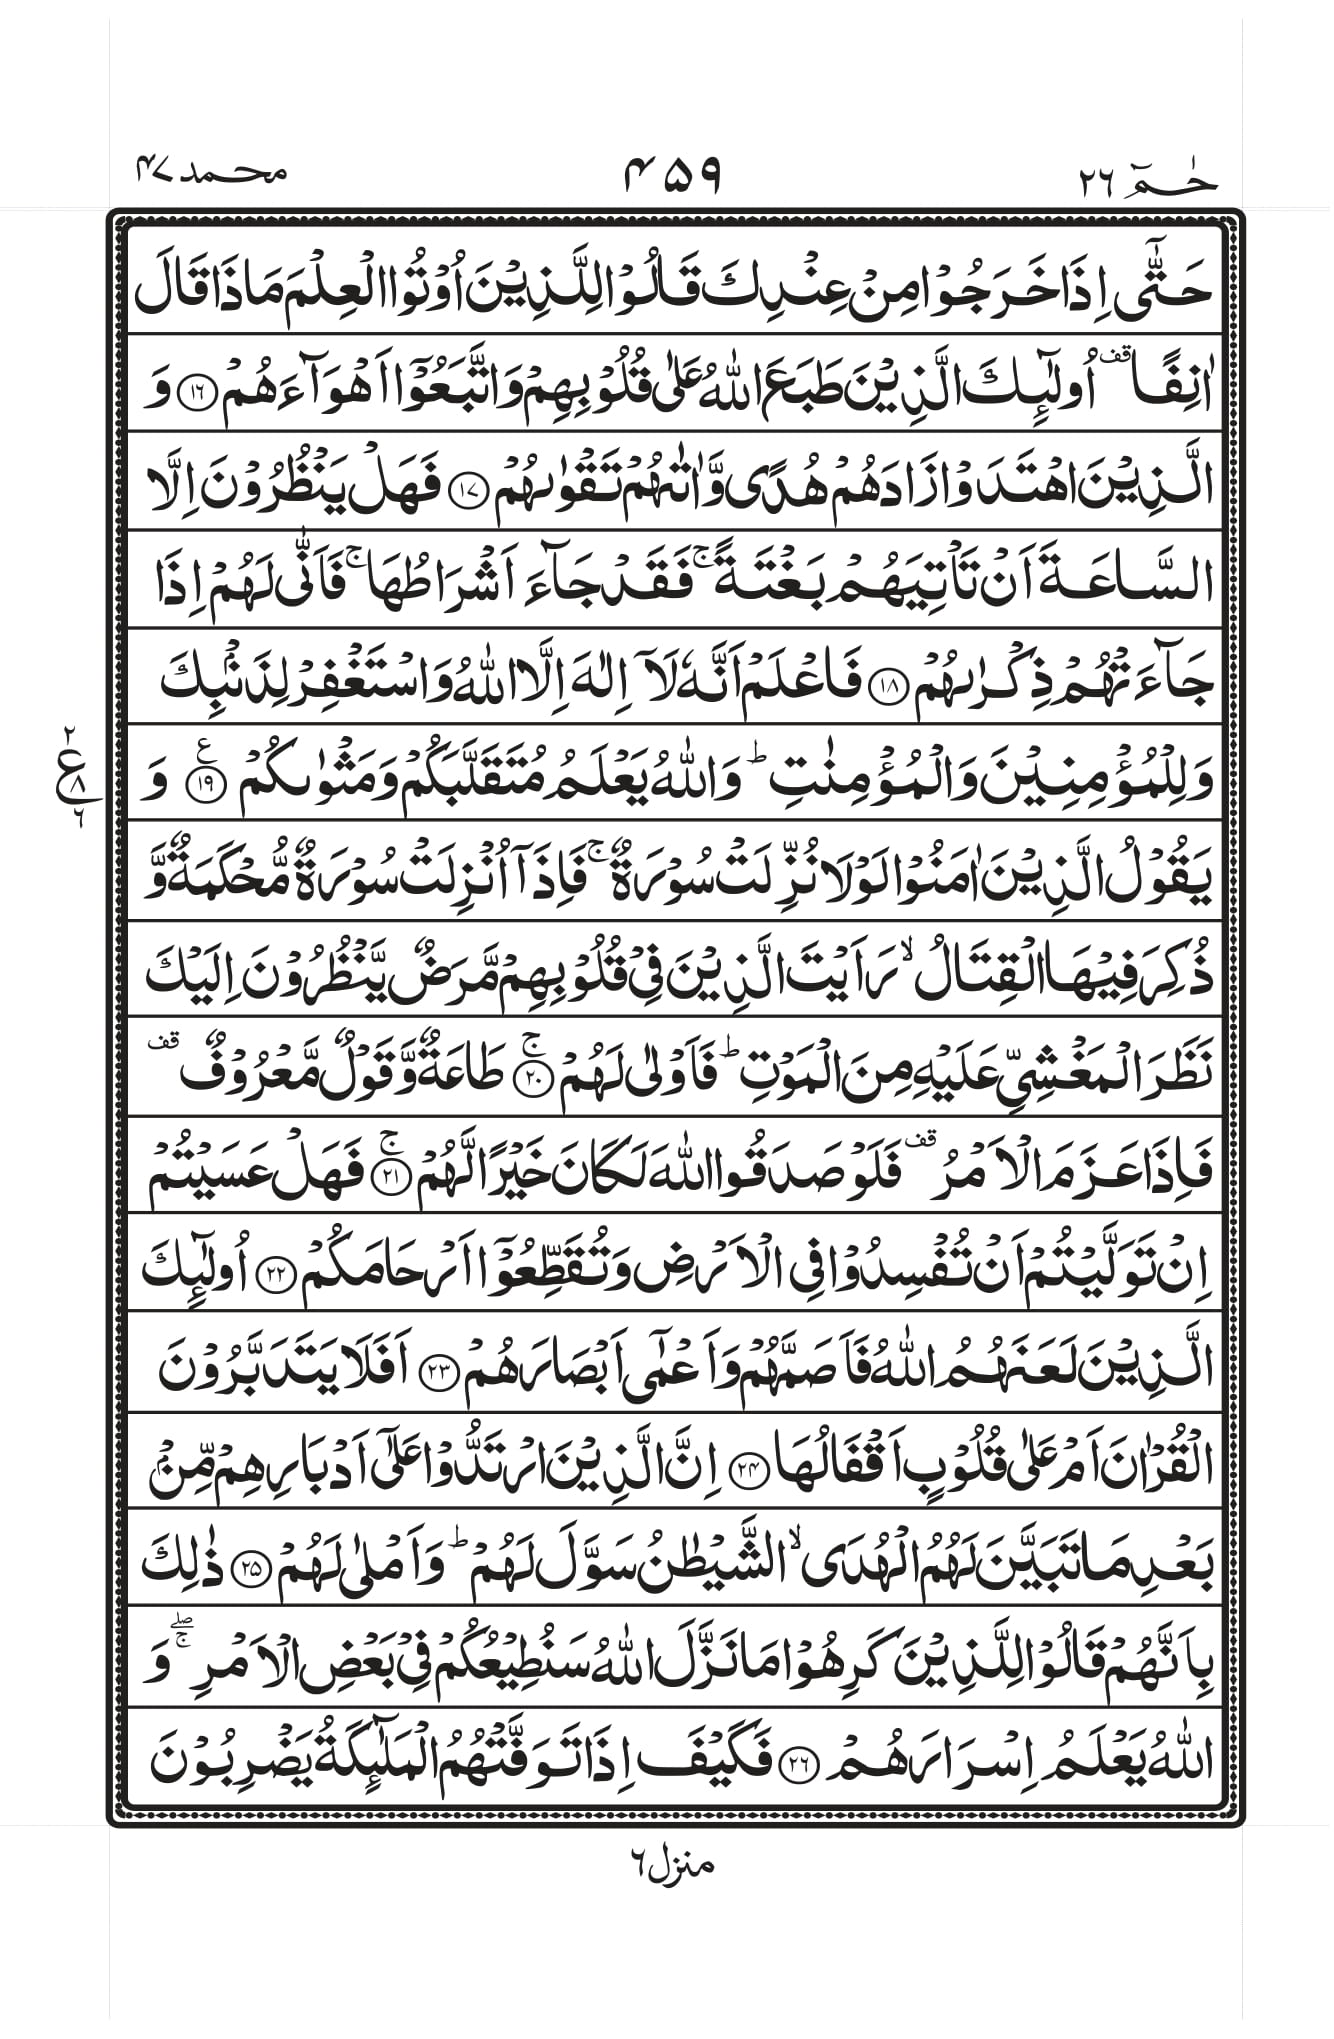 حٰمٓ ٢٦ ۴۵۹ محمد ۴۷
حَتّٰٓى اِذَا خَرَجُوْا مِنْ عِنْدِكَ قَالُوْا لِلَّذِيْنَ اُوْتُوا الْعِلْمَ مَاذَا قَالَ
اٰنِفًا ۫ اُولٰٓئِكَ الَّذِيْنَ طَبَعَ اللّٰهُ عَلٰى قُلُوْبِهِمْ وَاتَّبَعُوْٓا اَهْوَآءَهُمْ ۝١٦ وَ
الَّذِيْنَ اهْتَدَوْا زَادَهُمْ هُدًى وَّاٰتٰىهُمْ تَقْوٰىهُمْ ۝١٧ فَهَلْ يَنْظُرُوْنَ اِلَّا
السَّاعَةَ اَنْ تَاْتِيَهُمْ بَغْتَةً ۚ فَقَدْ جَآءَ اَشْرَاطُهَا ۚ فَاَنّٰى لَهُمْ اِذَا
جَآءَتْهُمْ ذِكْرٰىهُمْ ۝١٨ فَاعْلَمْ اَنَّهٗ لَآ اِلٰهَ اِلَّا اللّٰهُ وَاسْتَغْفِرْ لِذَنْۢبِكَ
وَلِلْمُؤْمِنِيْنَ وَالْمُؤْمِنٰتِ ؕ وَاللّٰهُ يَعْلَمُ مُتَقَلَّبَكُمْ وَمَثْوٰىكُمْ ۝١٩ ع وَ
٢ ع ٨ ٦
يَقُوْلُ الَّذِيْنَ اٰمَنُوْا لَوْلَا نُزِّلَتْ سُوْرَةٌ ۚ فَاِذَآ اُنْزِلَتْ سُوْرَةٌ مُّحْكَمَةٌ وَّ
ذُكِرَ فِيْهَا الْقِتَالُ ۙ رَاَيْتَ الَّذِيْنَ فِيْ قُلُوْبِهِمْ مَّرَضٌ يَّنْظُرُوْنَ اِلَيْكَ
نَظَرَ الْمَغْشِيِّ عَلَيْهِ مِنَ الْمَوْتِ ؕ فَاَوْلٰى لَهُمْ ۝٢٠ ج طَاعَةٌ وَّقَوْلٌ مَّعْرُوْفٌ قف
فَاِذَا عَزَمَ الْاَمْرُ قف فَلَوْ صَدَقُوا اللّٰهَ لَكَانَ خَيْرًا لَّهُمْ ۝٢١ ج فَهَلْ عَسَيْتُمْ
اِنْ تَوَلَّيْتُمْ اَنْ تُفْسِدُوْا فِى الْاَرْضِ وَتُقَطِّعُوْٓا اَرْحَامَكُمْ ۝٢٢ اُولٰٓئِكَ
الَّذِيْنَ لَعَنَهُمُ اللّٰهُ فَاَصَمَّهُمْ وَاَعْمٰٓى اَبْصَارَهُمْ ۝٢٣ اَفَلَا يَتَدَبَّرُوْنَ
الْقُرْاٰنَ اَمْ عَلٰى قُلُوْبٍ اَقْفَالُهَا ۝٢۴ اِنَّ الَّذِيْنَ ارْتَدُّوْا عَلٰٓى اَدْبَارِهِمْ مِّنْۢ
بَعْدِ مَا تَبَيَّنَ لَهُمُ الْهُدَى ۙ الشَّيْطٰنُ سَوَّلَ لَهُمْ ؕ وَاَمْلٰى لَهُمْ ۝٢۵ ذٰلِكَ
بِاَنَّهُمْ قَالُوْا لِلَّذِيْنَ كَرِهُوْا مَا نَزَّلَ اللّٰهُ سَنُطِيْعُكُمْ فِيْ بَعْضِ الْاَمْرِ ۖۚ وَ
اللّٰهُ يَعْلَمُ اِسْرَارَهُمْ ۝٢٦ فَكَيْفَ اِذَا تَوَفَّتْهُمُ الْمَلٰٓئِكَةُ يَضْرِبُوْنَ
منزل ٦